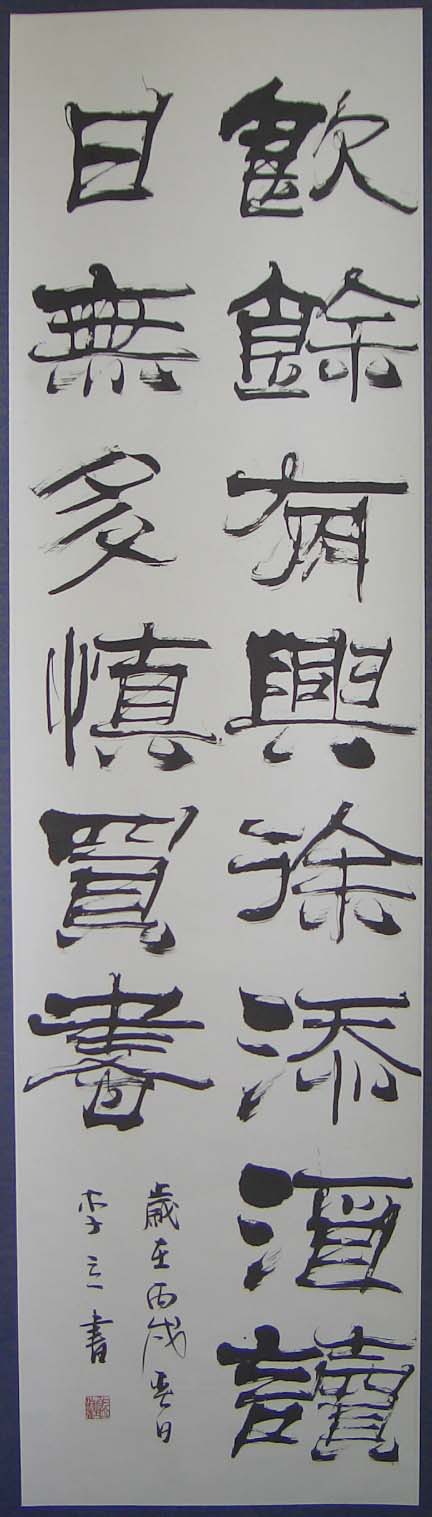 飲餘有興徐添酒讀
日無多慎買書
歲在丙戌春日
李立書